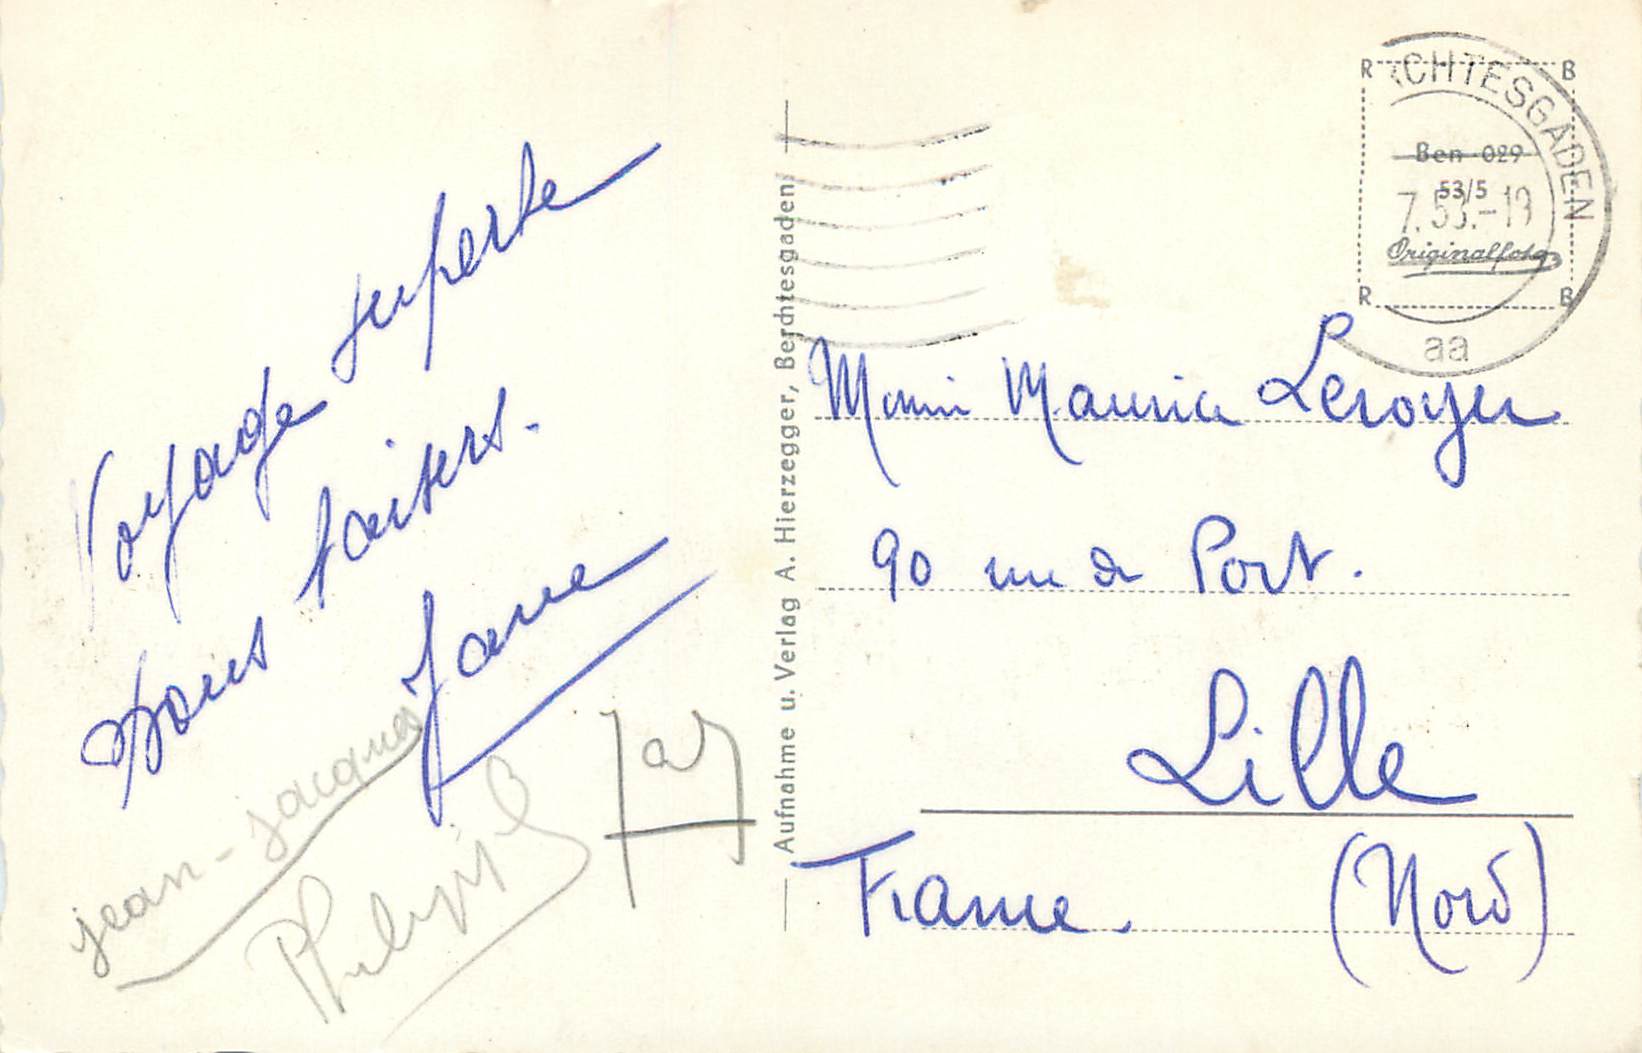 Voyage superbe
Bons baisers.
Jane
jean-jacques
Philippe
Aufnahme u. Verlag A. Hierzegger, Berchtesgaden
R B
Ben 029
53/5
Originalfoto
R B
CHTESGADEN
7.53.-19
aa
Maurice Leroyer
90 rue de Port.
Lille
France. (Nord)